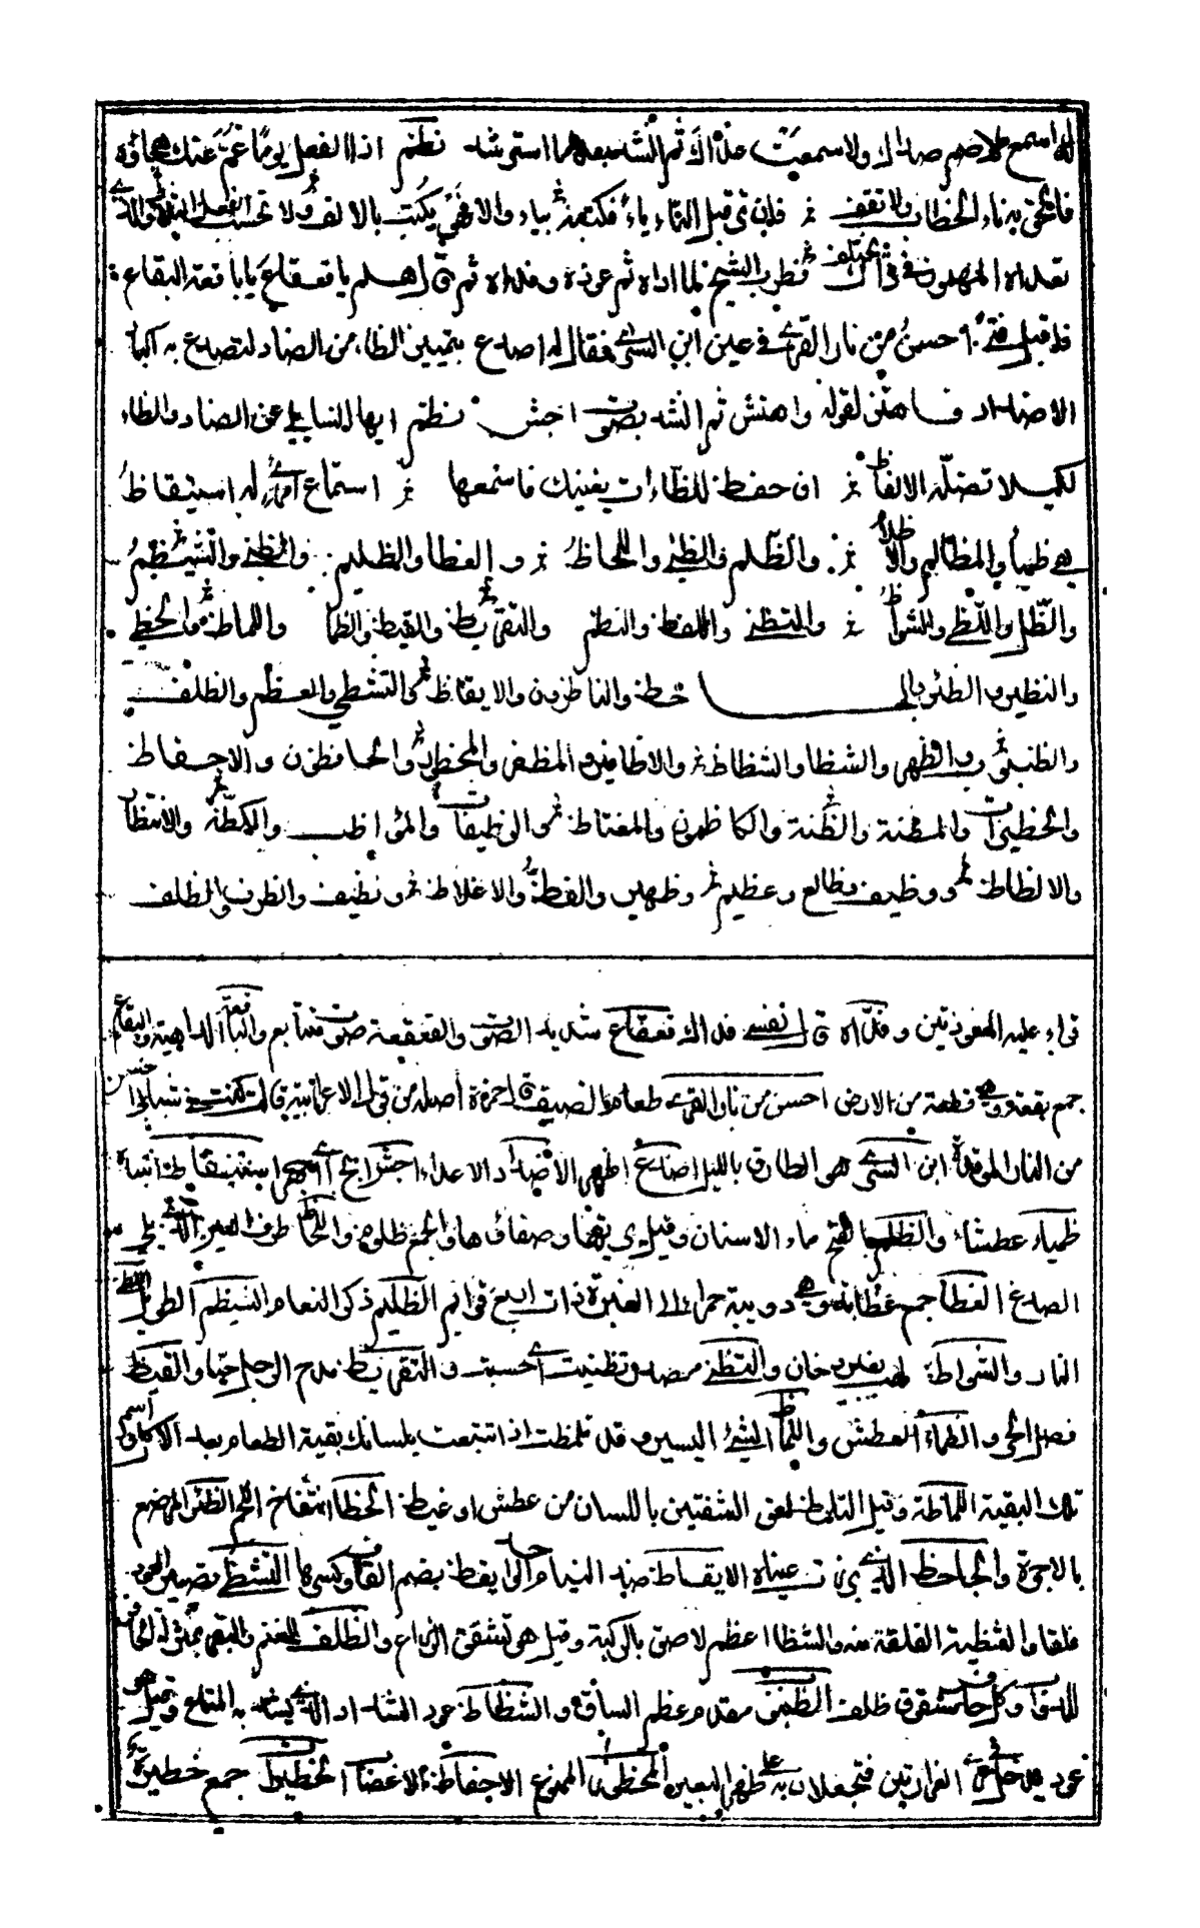 له اسمع لا صم صداك ولا سمعت عداك ثم انشد بعدما استرشد نظم اذا الفعل يوما غم عنك هجاؤه
فالحق به تاء الخطاب ولا تقف فان تر قبل التاء ياء فكتبه بياء والا فهو يكتب بالالف ولا تحسب الفعل الثلاثي والذي
تعداه والمهموز في ذاك يختلف فطرب الشيخ لما اداه ثم عوذه وفداه ثم قال هلم يا قعقاع يا باقعة البقاع
فاقبل فتى احسن من نار القرى في عين ابن السرى فقال له اصدع بتمييز الظاء من الضاد لتصدع به اكباد
الاضداد فاهتز لقوله واهتش ثم انشد بصوت اجش نظم ايها السايلي عن الضاد والظاء
لكيلا تضله الالفاظ ان حفظ الظاءات يغنيك فاسمعها استماع امرئ له استيقاظ
هي ظمياء والمظالم والاظلام والظلم والظبي واللحاظ والعظا والظليم والظبي والشيظم
والظل واللظى والشواظ والتظني واللفظ والنظم والتقريظ والقيظ والظما واللماظ والحظى
والنظير والظئر والجاحظ والناظرون والايقاظ والتشظي والعظم والظلف
والظنبوب والظهر والشظا والشظاظ والاظافير والمظفر والمحظور والحافظون والاحفاظ
والحظيرات والمظنة والظنة والكاظمون والمغتاظ والوظيفات والمواظب والكظة والانتظار
والالظاظ ووظيف وظالع وعظيم وظهير والفظ والاغلاظ ونظيف والظرف والظلف
قراء عليه المعوذتين وفداه قال نفسي فداك قعقاع شديد الصوت والقعقعة صوت متتابع والباقعة الداهية والبقاع
جمع بقعة وهي قطعة من الارض احسن من نار القرى طعام الضيف
من النار الموقدة ابن السرى هو الطارق بالليل اصدع اظهر الاضداد الاعداء اجش ابح استيقاظ انتباه
ظمياء عطشاء والظلم بالفتح ماء الاسنان وقيل بريقها وصفاؤها والجمع ظلوم واللحاظ طرف العين الذي يلي
الصدغ العظا جمع عظاية وهي دويبة حمراء الى الغبرة ذات اربع قوائم الظليم ذكر النعام الشيظم الطويل اللظى
النار والشواظ لهب بغير دخان والتظني مصدر تظنيت اي حسبت والتقريظ مدح الرجل حيا والقيظ
فصل الحر والظماء العطش واللماظ الشئ اليسير وقد تلمظت اذا تتبعت بلسانك بقية الطعام بعد الاكل واسم
تلك البقية اللماظة وقيل التلمظ لعق الشفتين باللسان من عطش او غيظ الحظا انتفاخ اللحم الظئر المرضع
بالاجرة والجاحظ الذي برزت عيناه الايقاظ ضد النيام الواحد يقظ بضم القاف وكسرها التشظي تصيير العود
فلقا والشظية الفلقة منه والشظا عظم لاصق بالركبة وقيل هو تشقق الذراع والظلف للغنم والبقر
وكل حافر مشقوق ظلف الظنبوب مقدم عظم الساق والشظاظ عود الشداد الذي يشد به المتاع وقيل هو
عود يدخل في الغرارتين فتجعلان به على ظهر البعير المحظور الممنوع الاحفاظ الاغضاب الحظيرات جمع حظيرة